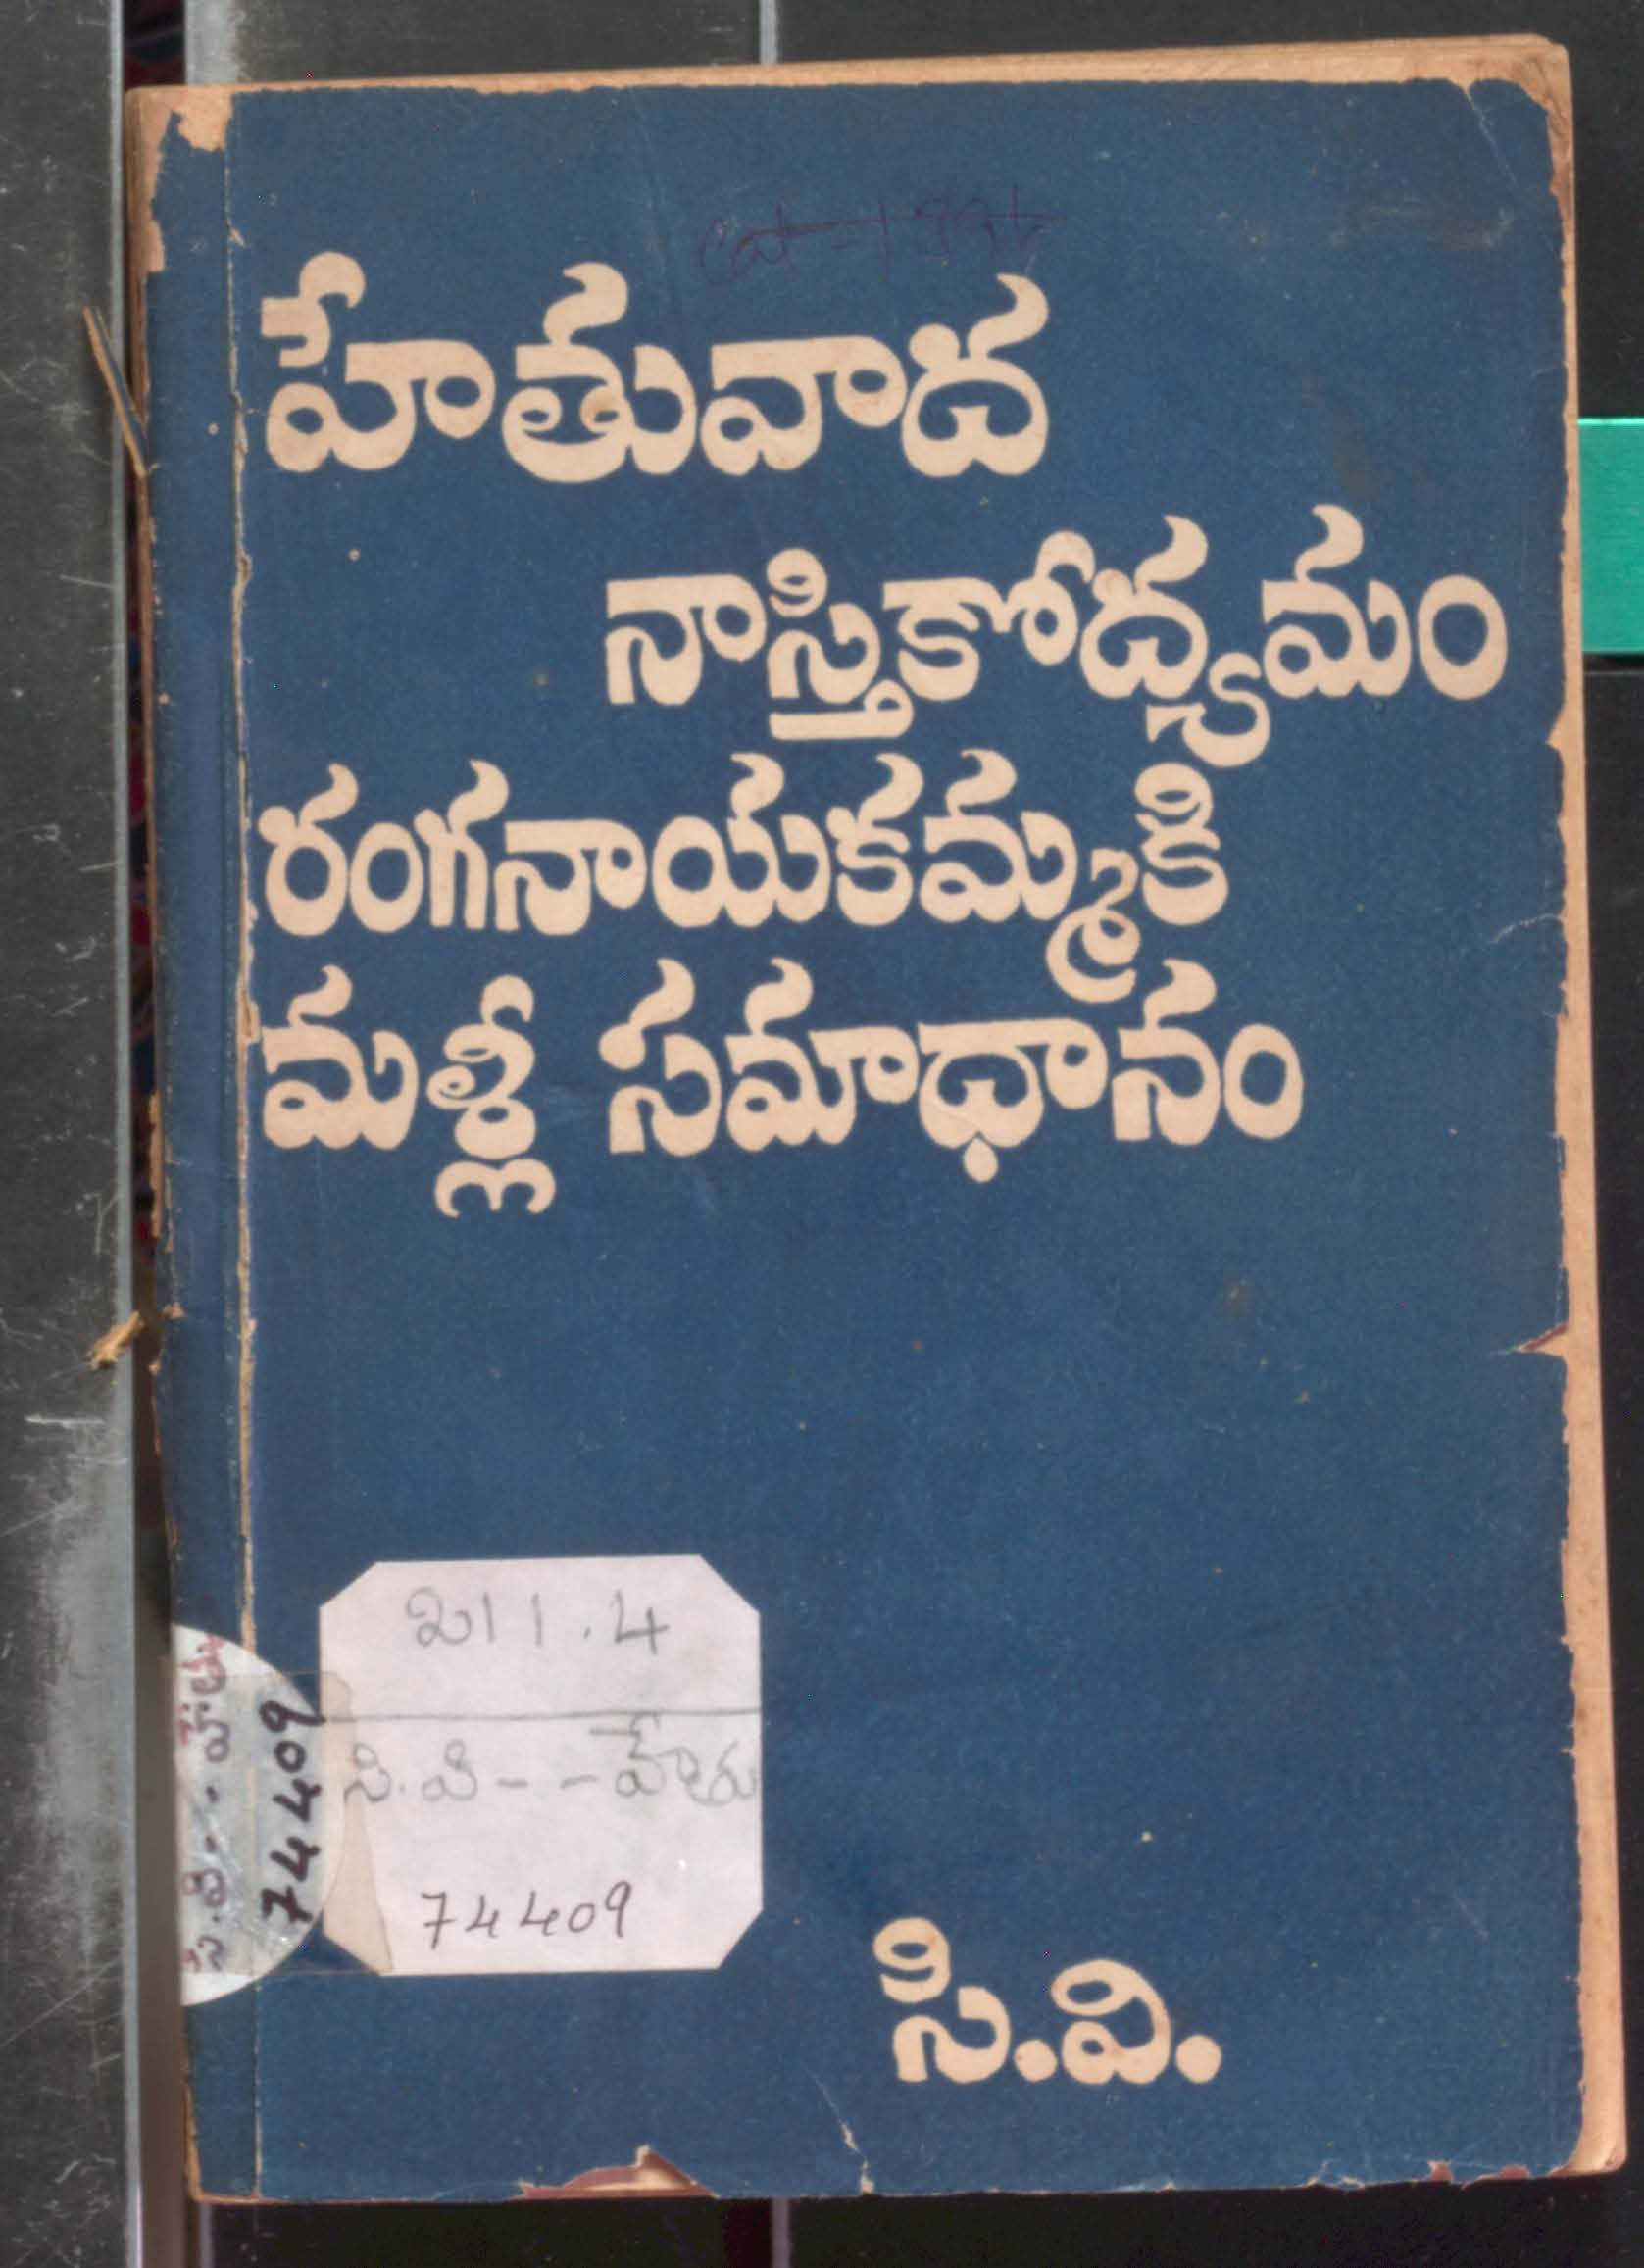 హేతువాద
నాస్తికోద్యమం
రంగనాయకమ్మకి
మళ్లీ సమాధానం
211.4
సి.వి--హేతు
74409
సి.వి--హేతు
74409
సి.వి.